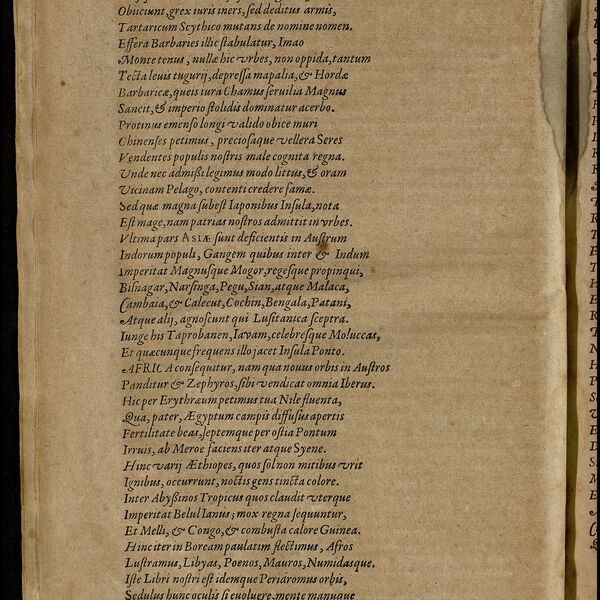 Obijciunt, grex iuris iners, sed deditus armis,
Tartaricum Scythico mutans de nomine nomen.
Effera Barbaries illic stabulatur, Imao
Monte tenus, nullæ hic vrbes, non oppida, tantum
Tecta leuis tugurij, depressa mapalia, & Hordæ
Barbaricæ, queis iura Chamus seruilia Magnus
Sancit, & imperio stolidis dominatur acerbo.
Protinus emenso longi valido obice muri
Chinenses petimus, preciosaque vellera Seres
Vendentes populis nostris male cognita regna.
Unde nec admißi legimus modo littus, & oram
Vicinam Pelago, contenti credere famæ.
Sed quæ magna subest Iaponibus Insula, nota
Est mage, nam patrias nostros admittit in vrbes.
Vltima pars ASIÆ sunt deficientis in Austrum
Indorum populi, Gangem quibus inter & Indum
Imperitat Magnusque Mogor, regesque propinqui,
Bisnagar, Narsinga, Pegu, Sian, atque Malaca,
Cambaia, & Calecut, Cochin, Bengala, Patani,
Atque alij, agnoscunt qui Lusitanica sceptra.
Iunge his Taprobanen, Iavam, celebresque Moluccas,
Et quæcunque frequens illo jacet Insula Ponto.
AFRICA consequitur, nam qua nouus orbis in Austros
Panditur & Zephyros, sibi vendicat omnia Iberus.
Hic per Erythræum petimus tua Nile fluenta,
Qua, pater, Ægyptum campis diffusus apertis
Fertilitate beas, septemque per ostia Pontum
Irruis, ab Meroe faciens iter atque Syene.
Hinc varij Æthiopes, quos sol non mitibus vrit
Ignibus, occurrunt, noctis gens tincta colore.
Inter Abyßinos Tropicus quos claudit vterque
Imperitat Belul Ianus; mox regna sequuntur,
Et Melli, & Congo, & combusta calore Guinea.
Hinc iter in Boream paulatim flectimus, Afros
Lustramus, Libyas, Poenos, Mauros, Numidasque.
Iste Libri nostri est idemque Peridromus orbis,
Sedulus hunc oculis si evoluere, mente manuque